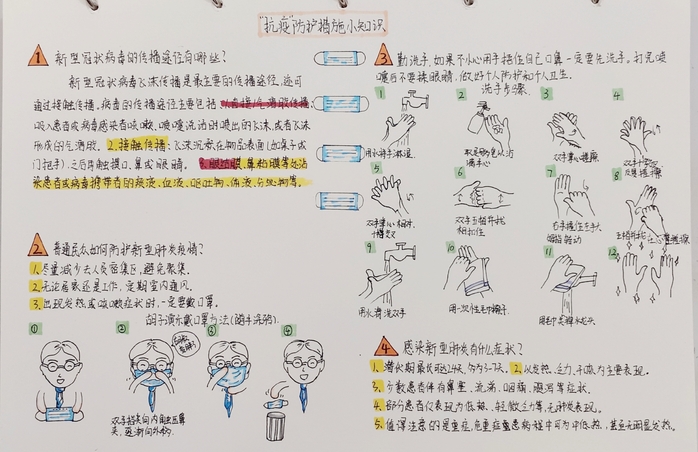 "抗疫"防护措施小知识
1 新型冠状病毒的传播途径有哪些？
新型冠状病毒飞沫传播是最主要的传播途径，还可
通过接触传播，病毒的传播途径主要包括：
吸入患者或病毒感染者咳嗽、喷嚏、说话时喷出的飞沫，或者飞沫
形成的气溶胶。2.接触传播：飞沫沉积在物品表面(如桌子或
门把手)，之后再触摸口、鼻或眼睛。3.眼结膜、鼻粘膜等处沾
染患者或病毒携带者的痰液、血液、呕吐物、体液、分泌物等。
2 普通民众如何防护新型肺炎疫情？
1.尽量减少去人员密集区，避免聚集。
2.无论居家还是工作，定期室内通风。
3.出现发热或咳嗽症状时，一定要戴口罩。
胡子演示戴口罩方法(随手洗粥)
① ② ③ ④
双手指夹向内用虫压鼻
夹，逐渐向外移。
3 勤洗手，如果不小心用手捂住自己口鼻一定要先洗手。打完喷
嚏后不要揉眼睛，做好个人防护和个人卫生。
洗手步骤
1 2 3 4
用水将手淋湿
双手掌心搓擦
5 6 7 8
双手掌心相对，
十指交叉
双手五指并拢
相扣住
右手握住左手大
拇指转动
9 10 11 12
用水清洗双手
用一次性毛巾擦手
用毛巾关掉水龙头
4 感染新型肺炎有什么症状？
1.潜伏期最长达14天，约为3-7天。2.以发热、乏力、干咳为主要表现。
3.少数患者伴有鼻塞、流涕、咽痛、腹泻等症状。
4.部分患者仅表现为低热、轻微乏力等，无肺炎表现。
5.值得注意的是重症、危重症患者病程中可为中低热，甚至无明显发热。